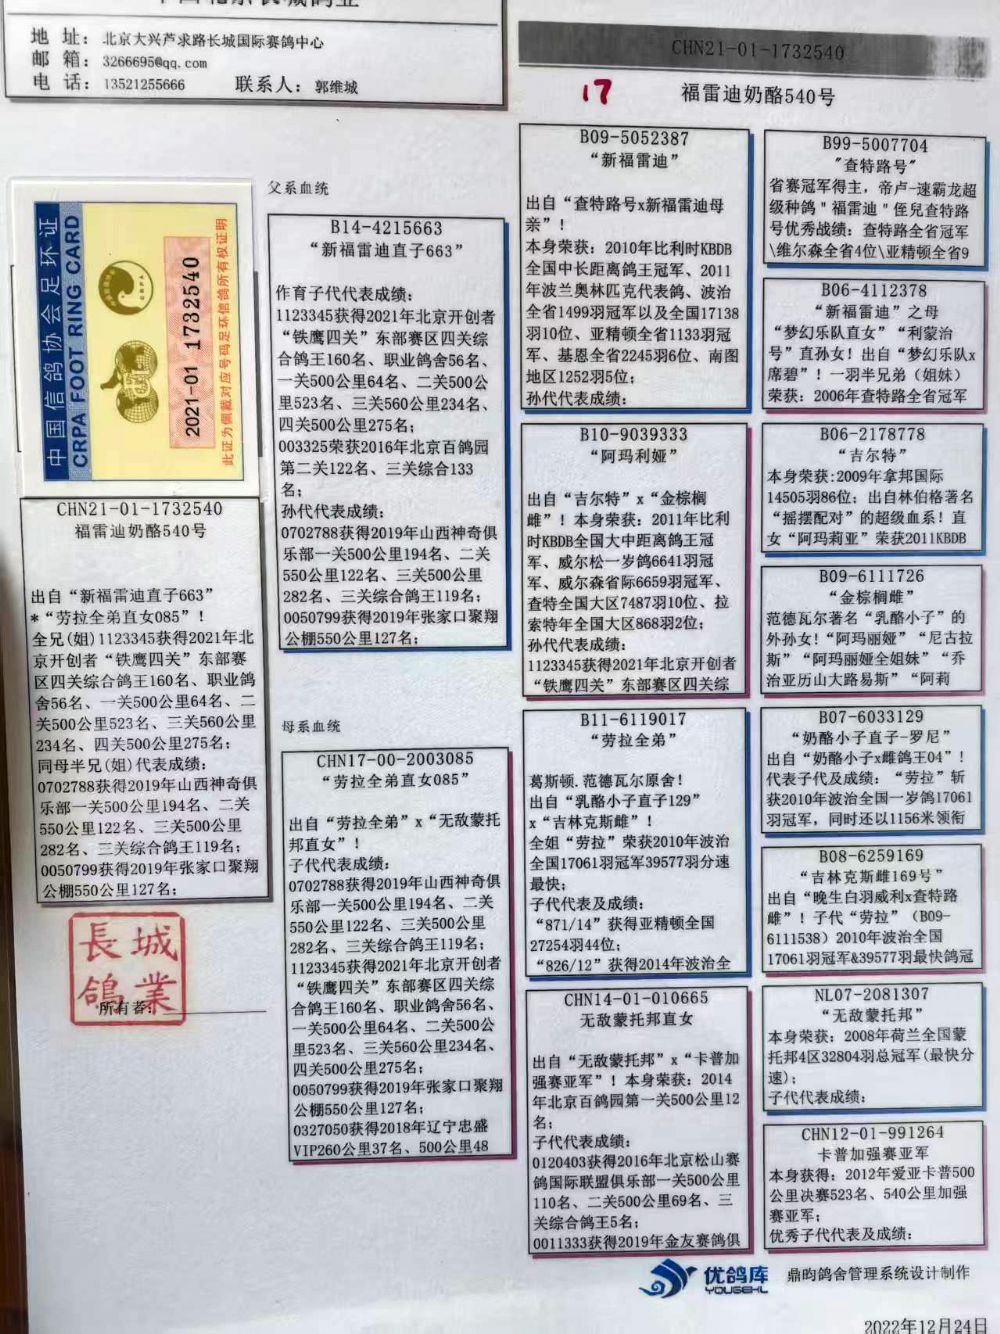 地 址：北京大兴芦求路长城国际赛鸽中心
邮 箱：3266695@qq.com
电 话：13521255666 联系人：郭维城
CHN21-01-1732540
17
福雷迪奶酪540号
中国信鸽协会足环证
CRPA FOOT RING CARD
2021-01 1732540
此证为佩戴对应号码足环信鸽所有权证明
CHN21-01-1732540
福雷迪奶酪540号
出自“新福雷迪直子663”
*“劳拉全弟直女085”！
全兄(姐)1123345获得2021年北
京开创者“铁鹰四关”东部赛
区四关综合鸽王160名、职业鸽
舍56名、一关500公里64名、二
关500公里523名、三关560公里
234名、四关500公里275名；
同母半兄(姐)代表成绩：
0702788获得2019年山西神奇俱
乐部一关500公里194名、二关
550公里122名、三关500公里
282名、三关综合鸽王119名；
0050799获得2019年张家口聚翔
公棚550公里127名；
長城
鸽業
所有者：
父系血统
B14-4215663
“新福雷迪直子663”
作育子代代表成绩：
1123345获得2021年北京开创者
“铁鹰四关”东部赛区四关综
合鸽王160名、职业鸽舍56名、
一关500公里64名、二关500公
里523名、三关560公里234名、
四关500公里275名；
003325荣获2016年北京百鸽园
第二关122名、三关综合133
名；
孙代代表成绩：
0702788获得2019年山西神奇俱
乐部一关500公里194名、二关
550公里122名、三关500公里
282名、三关综合鸽王119名；
0050799获得2019年张家口聚翔
公棚550公里127名；
母系血统
CHN17-00-2003085
“劳拉全弟直女085”
出自“劳拉全弟”x“无敌蒙托
邦直女”！
子代代表成绩：
0702788获得2019年山西神奇俱
乐部一关500公里194名、二关
550公里122名、三关500公里
282名、三关综合鸽王119名；
1123345获得2021年北京开创者
“铁鹰四关”东部赛区四关综
合鸽王160名、职业鸽舍56名、
一关500公里64名、二关500公
里523名、三关560公里234名、
四关500公里275名；
0050799获得2019年张家口聚翔
公棚550公里127名；
0327050获得2018年辽宁忠盛
VIP260公里37名、500公里48
B09-5052387
“新福雷迪”
出自“查特路号x新福雷迪母
亲”！
本身荣获：2010年比利时KBDB
全国中长距离鸽王冠军、2011
年波兰奥林匹克代表鸽、波治
全省1499羽冠军以及全国17138
羽10位、亚精顿全省1133羽冠
军、基恩全省2245羽6位、南图
地区1252羽5位；
孙代代表成绩：
B10-9039333
“阿玛利娅”
出自“吉尔特”x“金棕榈
雌”！本身荣获：2011年比利
时KBDB全国大中距离鸽王冠
军、威尔松一岁鸽6641羽冠
军、威尔森省际6659羽冠军、
查特全国大区7487羽10位、拉
索特年全国大区868羽2位；
孙代代表成绩：
1123345获得2021年北京开创者
“铁鹰四关”东部赛区四关综
B11-6119017
“劳拉全弟”
葛斯顿.范德瓦尔原舍！
出自“乳酪小子直子129”
x“吉林克斯雌”！
全姐“劳拉”荣获2010年波治
全国17061羽冠军39577羽分速
最快；
子代代表及成绩：
“871/14”获得亚精顿全国
27254羽44位；
“826/12”获得2014年波治全
CHN14-01-010665
无敌蒙托邦直女
出自“无敌蒙托邦”x“卡普加
强赛亚军”！本身荣获：2014
年北京百鸽园第一关500公里12
名；
子代代表成绩：
0120403获得2016年北京松山赛
鸽国际联盟俱乐部一关500公里
110名、二关500公里69名、三
关综合鸽王5名；
0011333获得2019年金友赛鸽俱
B99-5007704
"查特路号"
省赛冠军得主，帝卢-速霸龙超
级种鸽＂福雷迪＂侄兒查特路
号优秀战绩：查特路全省冠军
\维尔森全省4位\亚精顿全省9
B06-4112378
“新福雷迪”之母
“梦幻乐队直女”“利蒙治
号”直孙女！出自“梦幻乐队x
席碧”！一羽半兄弟（姐妹）
荣获：2006年查特路全省冠军
B06-2178778
“吉尔特”
本身荣获:2009年拿邦国际
14505羽86位；出自林伯格著名
“摇摆配对”的超级血系！直
女“阿玛莉亚”荣获2011KBDB
B09-6111726
“金棕榈雌”
范德瓦尔著名“乳酪小子”的
外孙女！“阿玛丽娅”“尼古拉
斯”“阿玛丽娅全姐妹”“乔
治亚历山大路易斯”“阿莉
B07-6033129
“奶酪小子直子-罗尼”
出自“奶酪小子x雌鸽王04”！
代表子代及成绩：“劳拉”斩
获2010年波治全国一岁鸽17061
羽冠军，同时还以1156米领衔
B08-6259169
“吉林克斯雌169号”
出自“晚生白羽威利x查特路
雌”！子代“劳拉”（B09-
6111538）2010年波治全国
17061羽冠军&39577羽最快鸽冠
NL07-2081307
“无敌蒙托邦”
本身荣获：2008年荷兰全国蒙
托邦4区32804羽总冠军(最快分
速)；
子代代表成绩：
CHN12-01-991264
卡普加强赛亚军
本身获得：2012年爱亚卡普500
公里决赛523名、540公里加强
赛亚军；
优秀子代代表及成绩：
优鸽库
YOUGEKU
鼎昀鸽舍管理系统设计制作
2022年12月24日